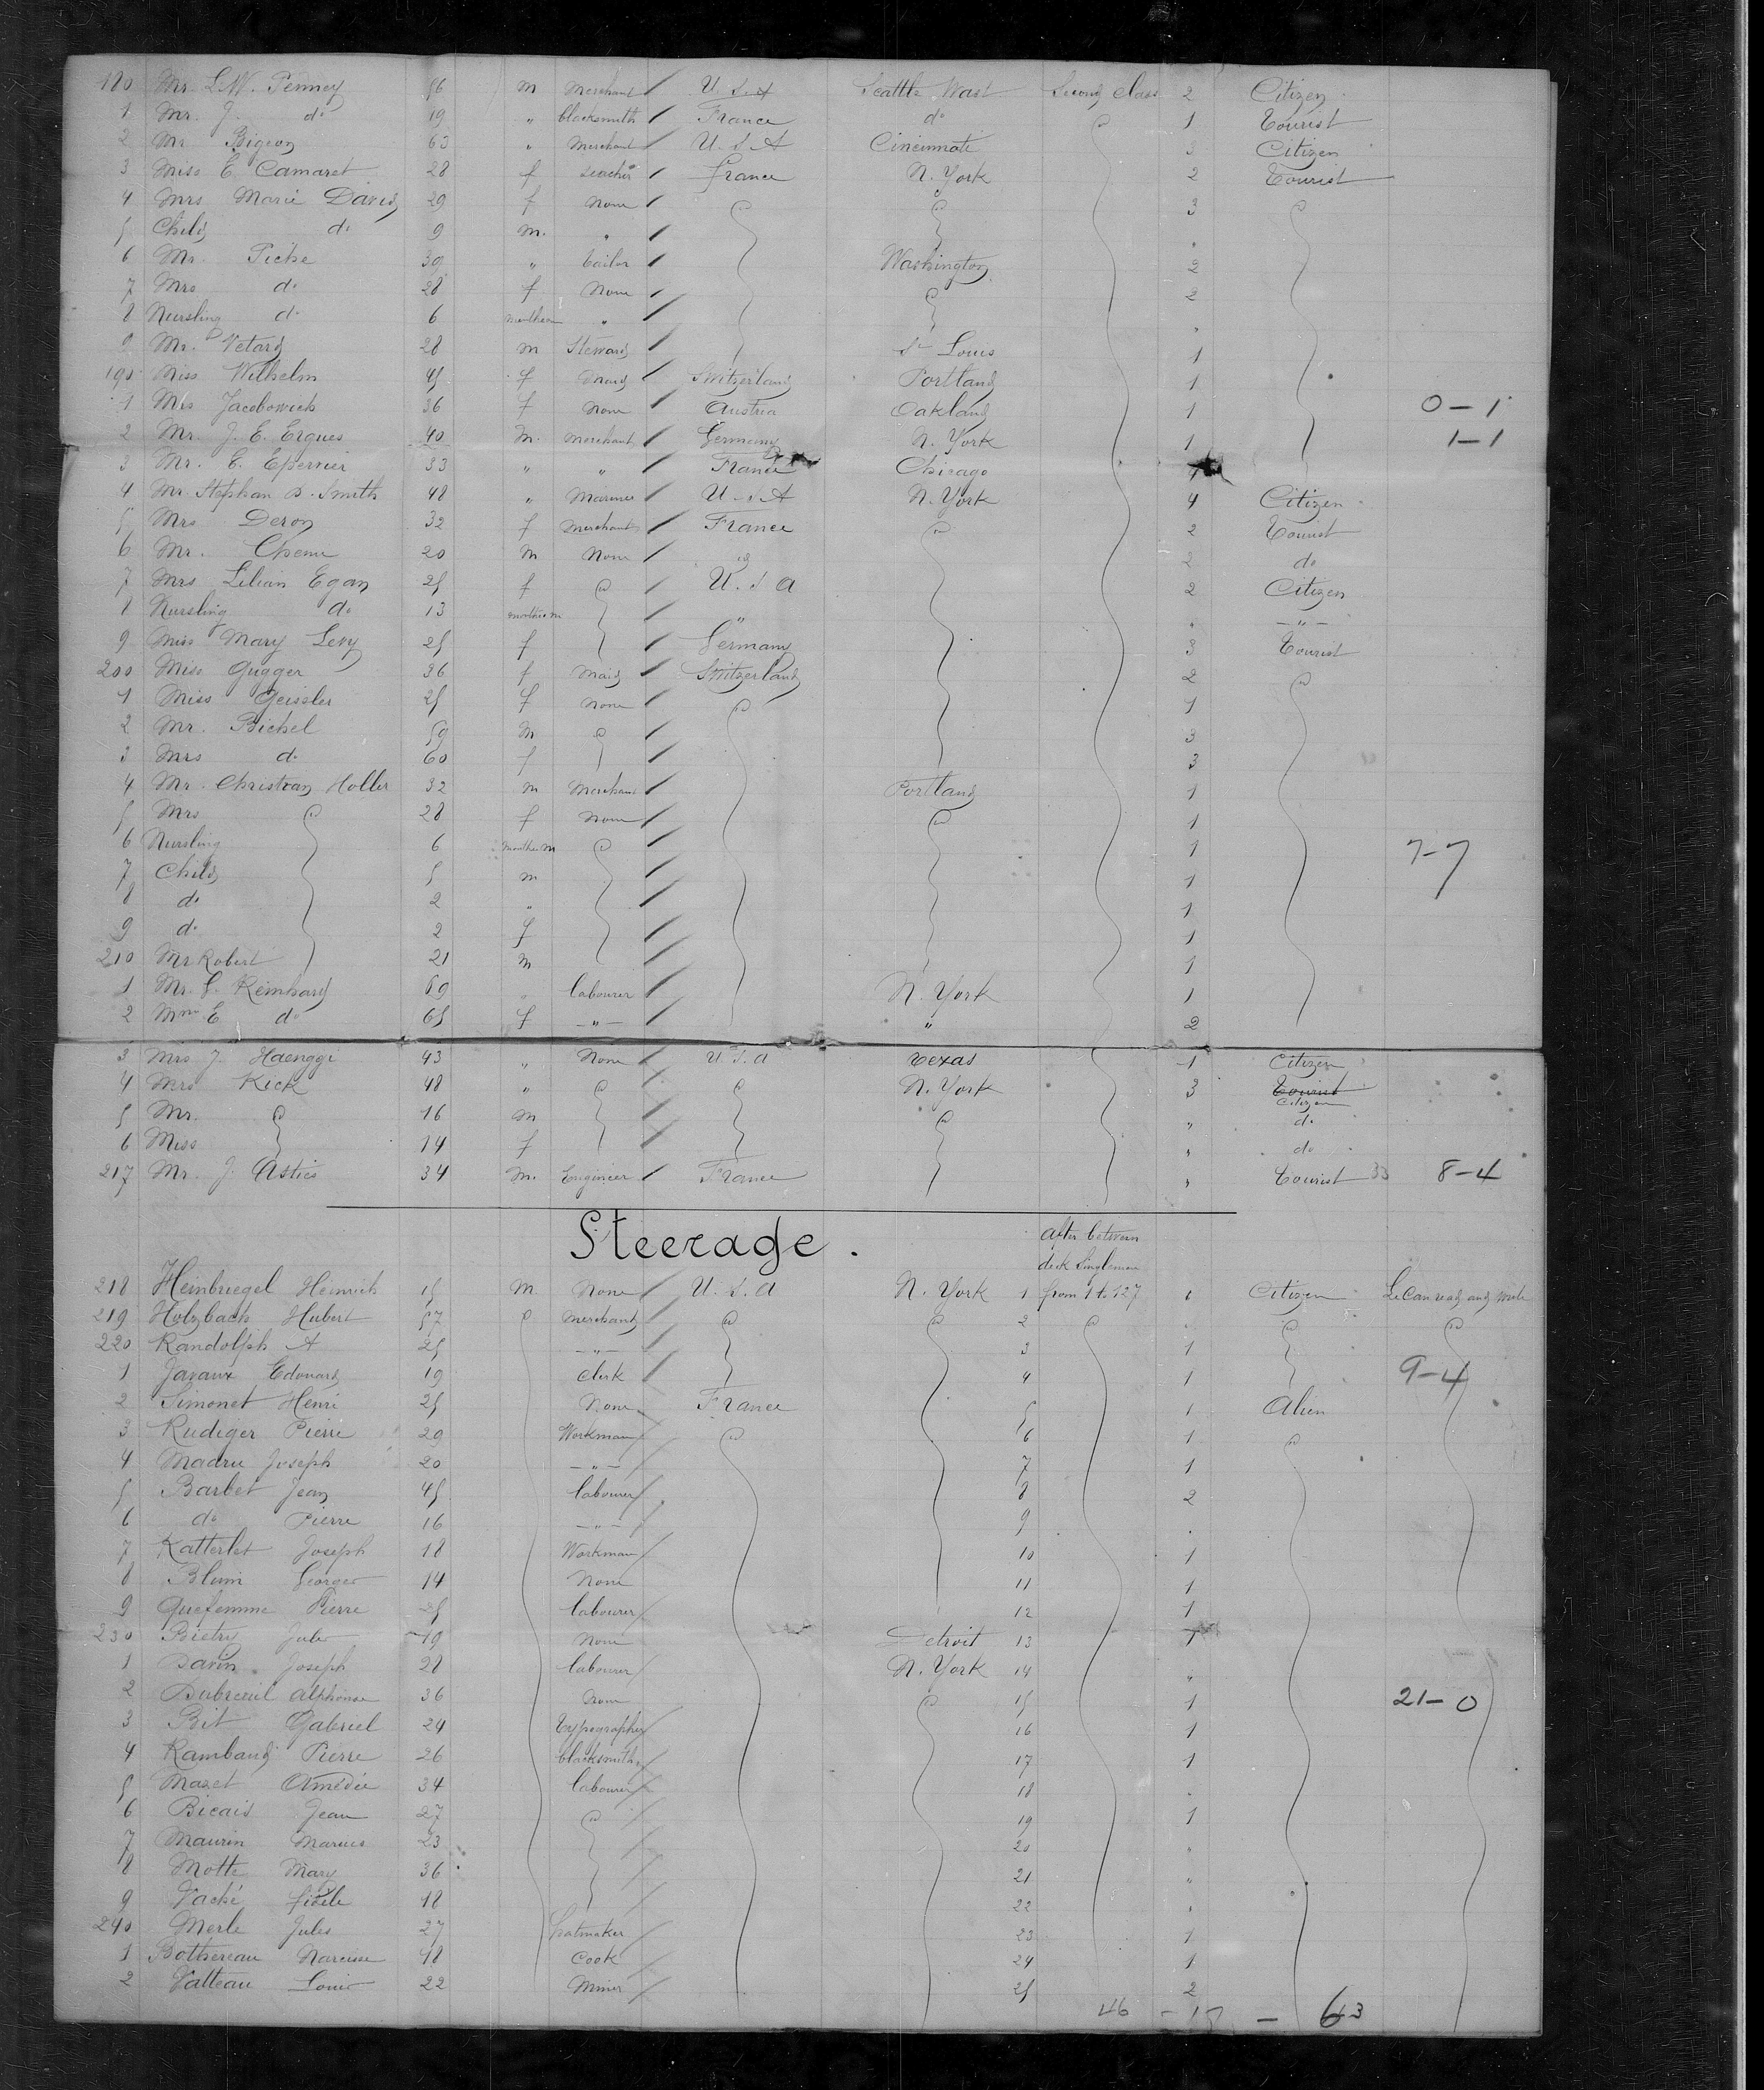 180 Mr. L.W. Penney 56 m Merchant U.S.A Seattle Wash Second Class 2 Citizen
1 Mr. J. do 19 " blacksmith France do 1 Tourist
2 Mr Bigeon 63 " Merchant U.S.A Cincinnati 3 Citizen
3 Miss E. Camaret 28 f teacher France N. York 2 Tourist
4 Mrs Marie David 29 f None 3
5 Child do 9 m. "
6 Mr. Piche 30 " tailor Washington 2
7 Mrs do 28 f None 2
8 Nursling do 6 months m "
9 Mr. Vetard 28 m Steward St Louis 1
190 Miss Wilhelm 45 f Maid Switzerland Portland 1
1 Mrs Jacobowich 36 f None Austria Oakland 1 0-1
2 Mr. J. E. Ergues 40 M. Merchant Germany N. York 1 1-1
3 Mr. E. Epervier 33 " " France Chicago 1
4 Mr. Stephan D. Smith 48 " Mariner U.S.A N. York 4 Citizen
5 Mrs Deron 32 f Merchant France 2 Tourist
6 Mr. Chene 20 m None id 2 do
7 Mrs Lilian Egan 25 f U.S.A 2 Citizen
8 Nursling do 13 months m " "
9 Miss Mary Levy 25 f Germany 3 Tourist
200 Miss Gugger 36 f Maid Switzerland 2
1 Miss Geissler 25 f None 1
2 Mr. Bickel 59 m 3
3 Mrs do 60 f 3
4 Mr. Christian Holler 32 m Merchant Portland 1
5 Mrs 28 f None 1
6 Nursling 6 months m 1 7-7
7 Child 5 m 1
8 do 2 " 1
9 do 2 f 1
210 Mr Robert 21 m 1
1 Mr. J. Reinhard 69 " labourer N. York 1
2 Mme E. do 65 f " " 2
3 Mrs J. Haenggi 43 " None U.S.A Texas 1 Citizen
4 Mrs Kick 48 " N. York 3 Tourist Citizen
5 Mr. 16 m " do
6 Miss 14 f " do
217 Mr. J. Astier 34 M. Engineer France " Tourist 33 8-4
Steerage.
after between
deck Singlemen
218 Heinbruegel Heinrich 15 m None U.S.A N. York 1 from 1 to 127 1 Citizen He Can read and write
219 Holzbach Hubert 57 Merchant 2
220 Randolph A 25 " 3 1
1 Javaux Edouard 19 Clerk 4 1 9-4
2 Simonet Henri 25 None France 5 1 Alien
3 Rudiger Pierre 29 Workman 6 1
4 Madru Joseph 20 " 7 1
5 Barbet Jean 45 labourer 8 2
6 do Pierre 16 " 9
7 Katterlet Joseph 18 Workman 10 1
8 Blum Georges 14 None 11 1
9 Quefemme Pierre 25 labourer 12 1
230 Bietry Jules 19 None Detroit 13 1
1 Davin Joseph 28 labourer N. York 14 "
2 Dubreuil Alphonse 36 None 15 1 21-0
3 Bit Gabriel 24 typographer 16 1
4 Rambaud Pierre 26 blacksmith 17 1
5 Mazet Amédée 34 labourer 18
6 Bicais Jean 27 19 1
7 Maurin Marius 23 20 "
8 Motte Mary 36 21 "
9 Vaché fidèle 18 22 "
240 Merle Jules 27 hatmaker 23 1
1 Bothereau Narcisse 48 Cook 24 1
2 Vatteau Louis 22 Miner 25 2
46 - 17 - 63